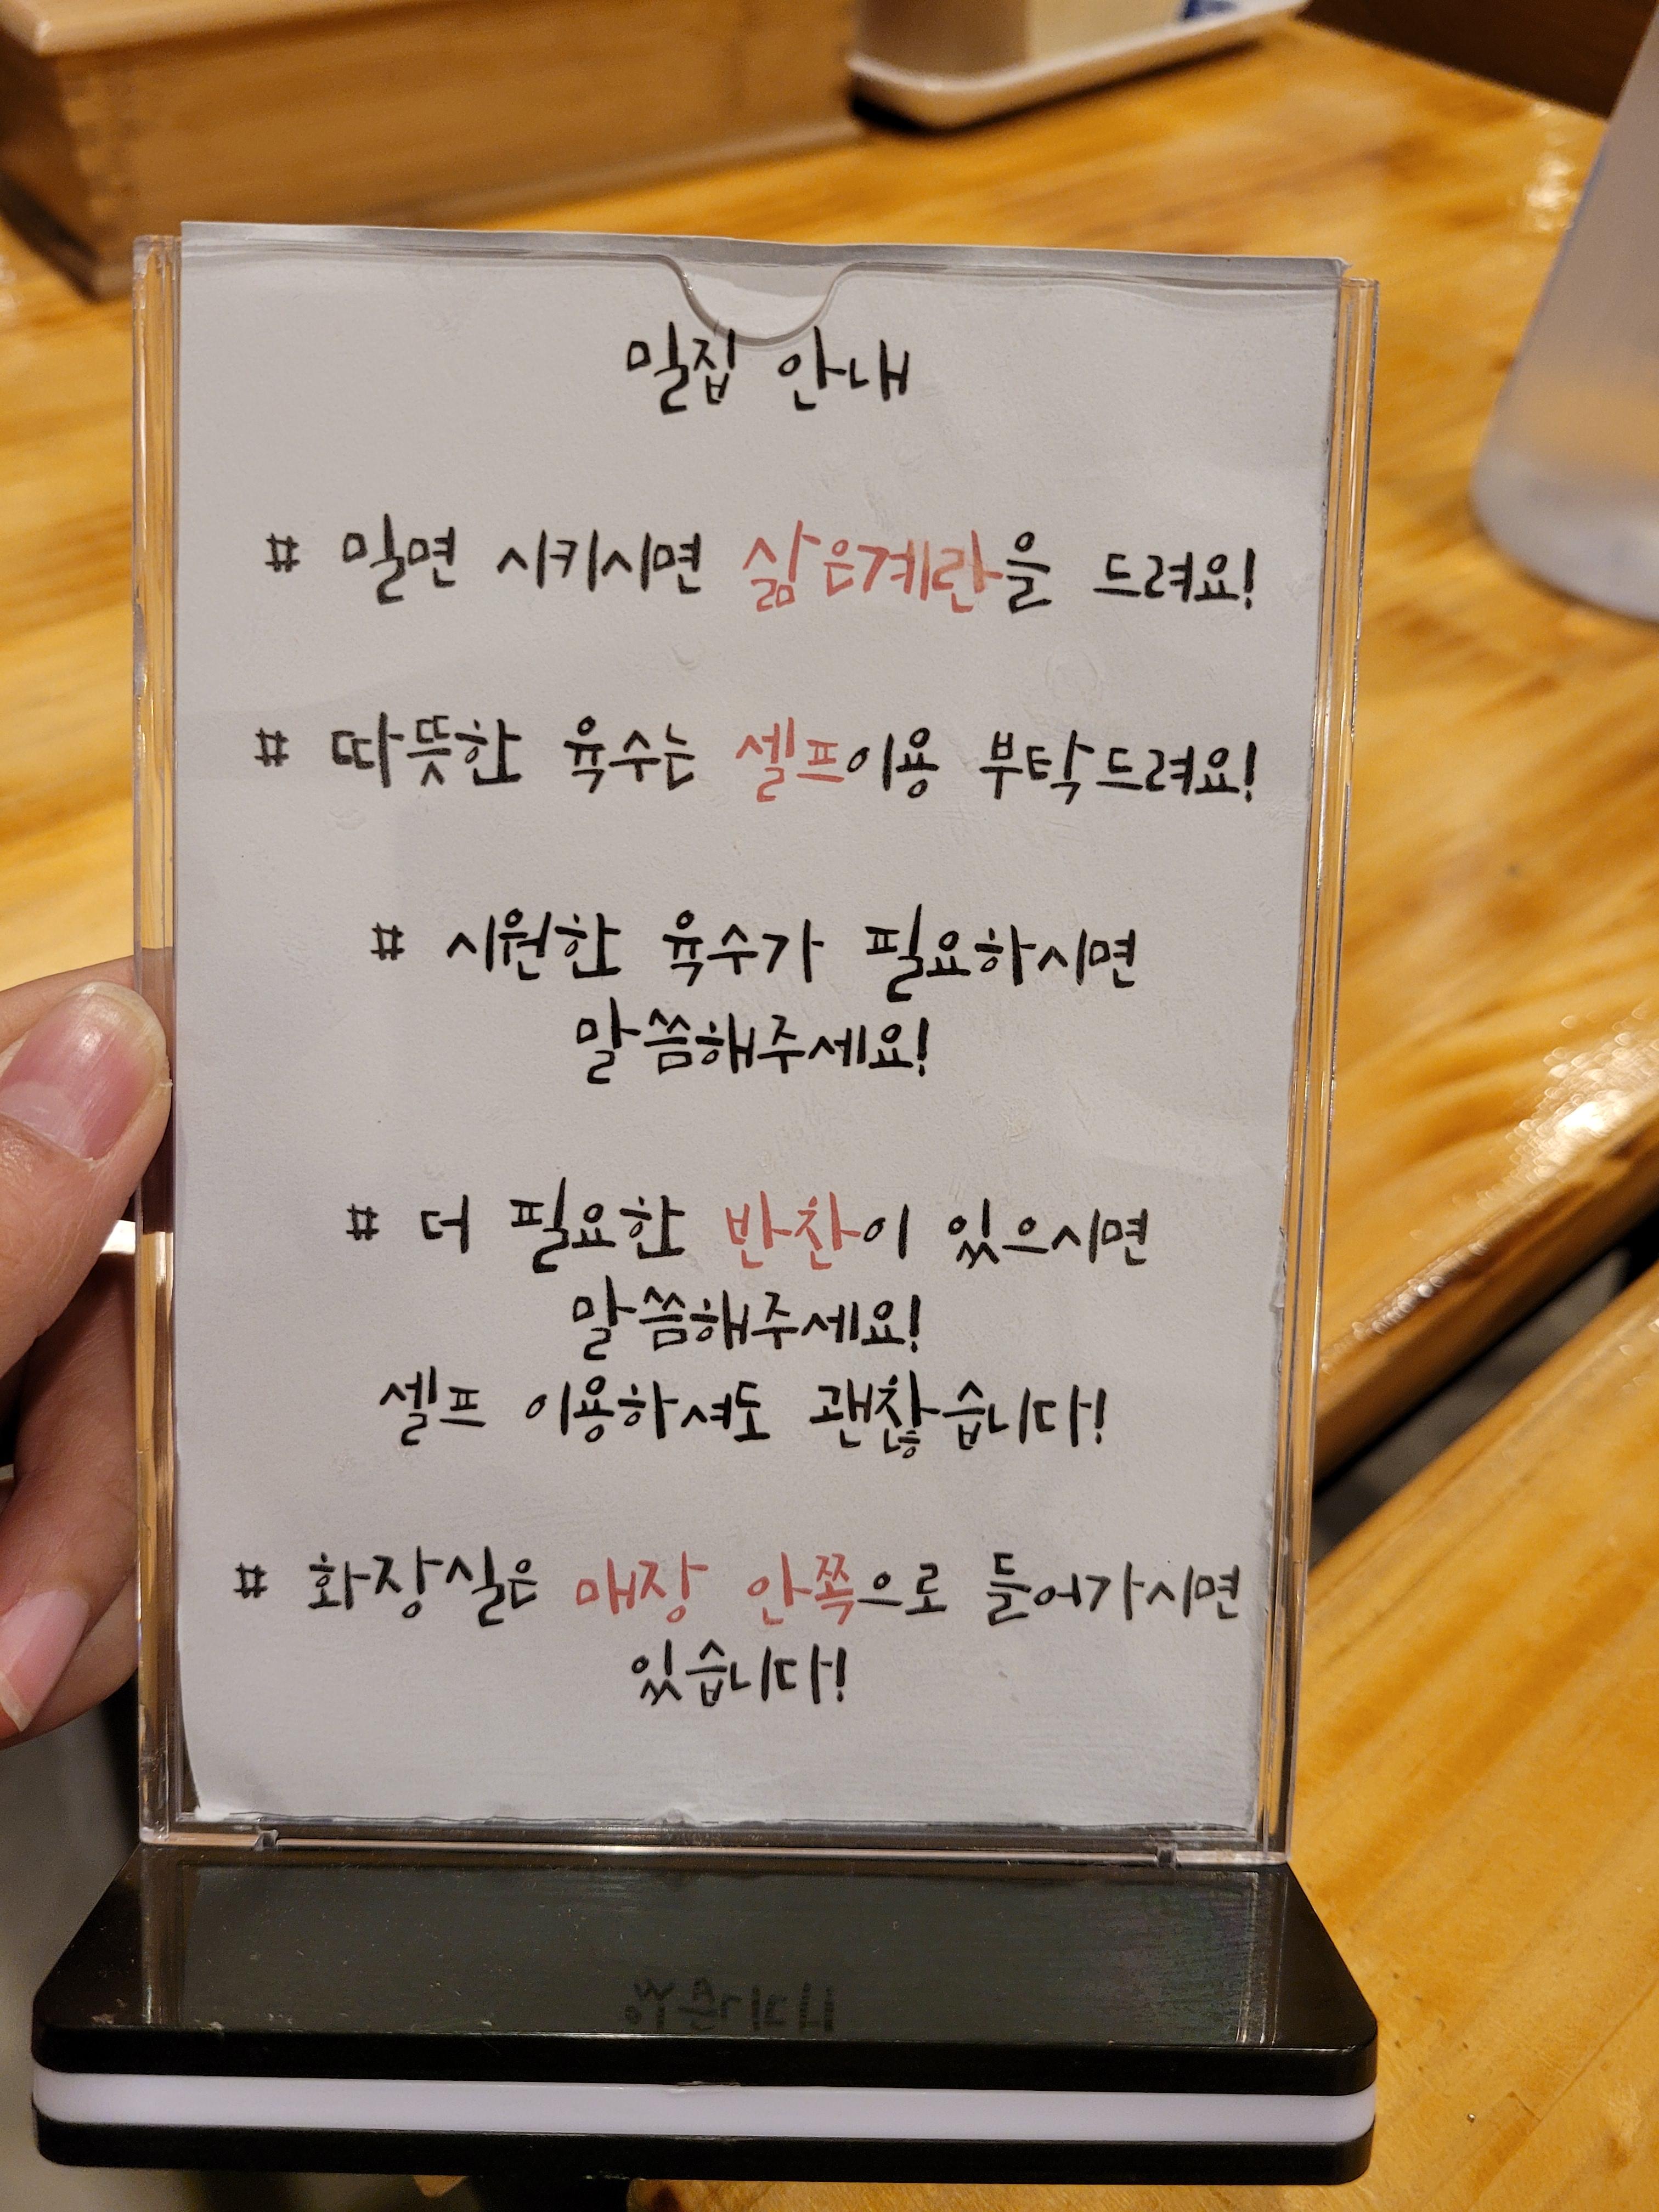 밀집 안내
# 밀면 시키시면 삶은계란을 드려요!
# 따뜻한 육수는 셀프이용 부탁드려요!
# 시원한 육수가 필요하시면
말씀해주세요!
# 더 필요한 반찬이 있으시면
말씀해주세요!
셀프 이용하셔도 괜찮습니다!
# 화장실은 매장 안쪽으로 들어가시면
있습니다!